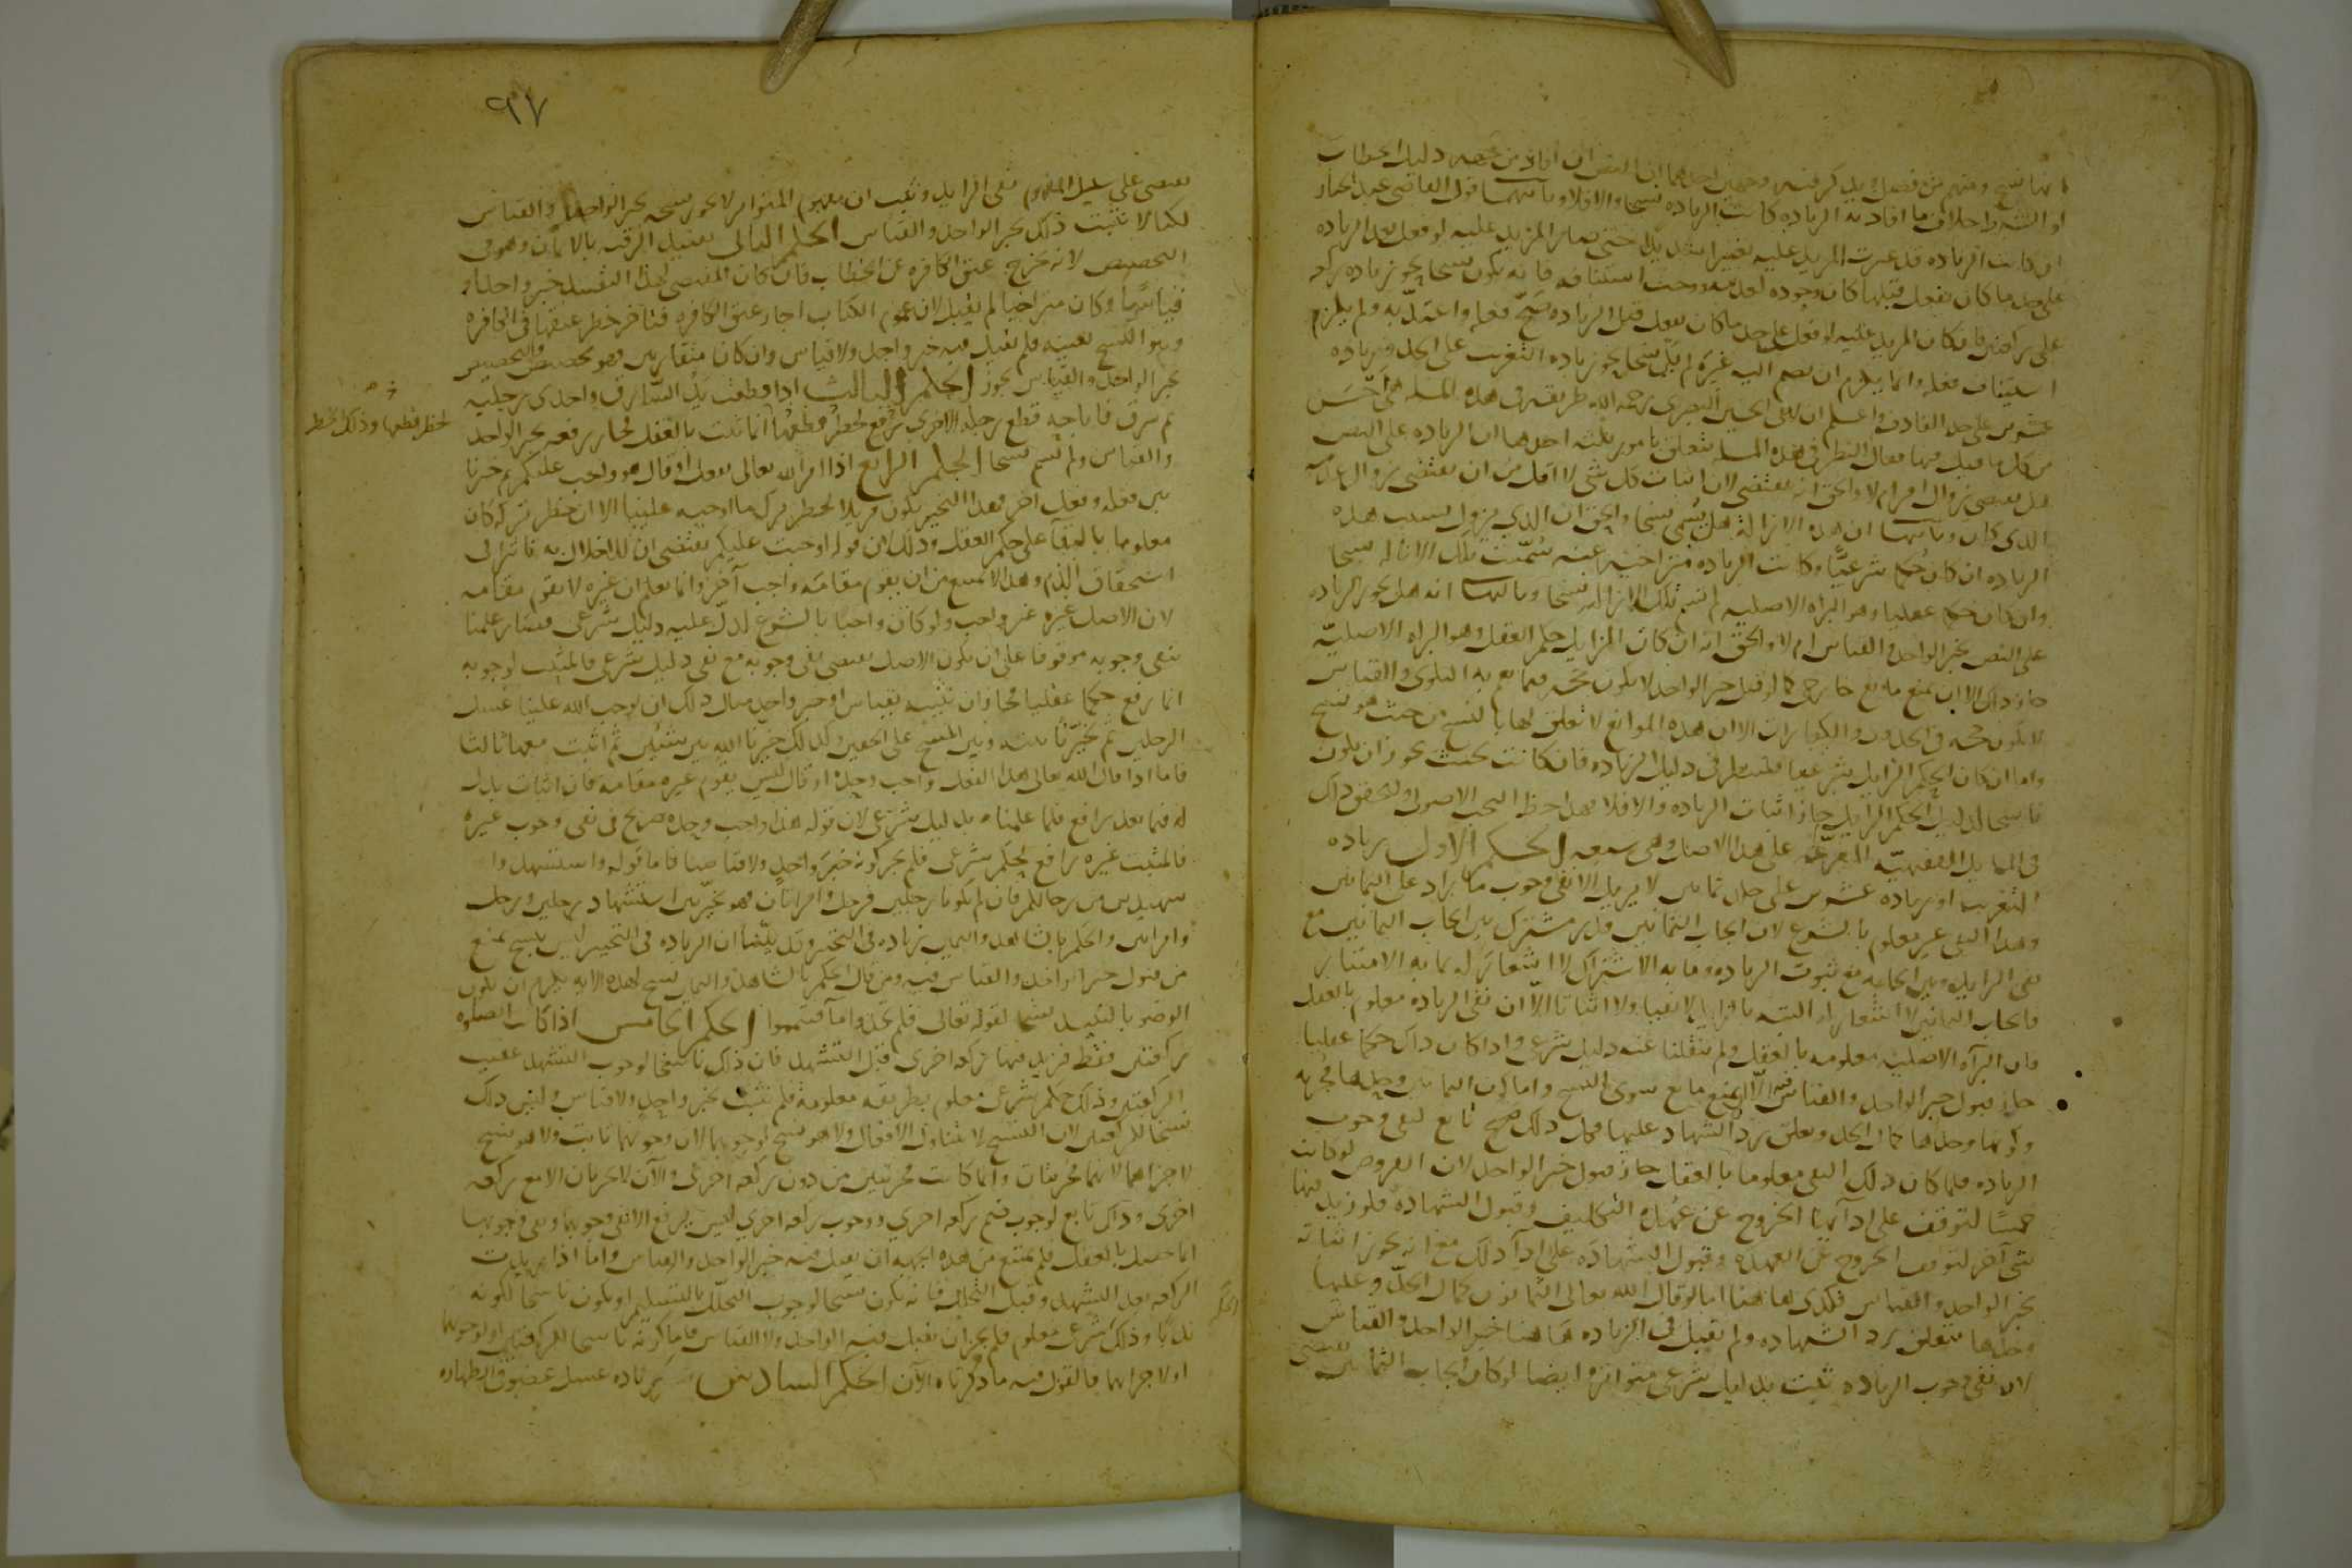 انها نسخ ومنهم من فصل وذكر فيه وجهان احدهما ان النص ان افاد من جهة دليل الخطاب
او الشرط خلاف ما افادته الزيادة كانت الزيادة نسخا والا فلا وثانيها قول القاضي عبد الجبار
ان كانت الزيادة قد غيرت المزيد عليه تغييرا شديدا حتى صار المزيد عليه لو فعل بعد الزيادة
على حد ما كان يفعل قبلها كان وجوده كعدمه ووجب استئنافه فانه يكون نسخا نحو زيادة ركعة
على ركعتين وان كان المزيد عليه لو فعل على حد ما كان يفعل قبل الزيادة صح فعله واعتد به ولم يلزم
استيناف فعله وانما يلزم ان يضم اليه غيره لم يكن نسخا نحو زيادة التغريب على الجلد وزيادة
عشرين على حد القاذف واعلم ان لابي الحسين البصري رحمه الله طريقة في هذه المسلة هي احسن
من كل ما قيل فيها فقال النظر في هذه المسلة يتعلق بامور ثلثة احدها ان الزيادة على النص
هل تقتضي زوال امر ام لا والحق انه يقتضي لان اثبات كل شي لا اقل من ان يقتضي زوال عدمه
الذي كان وثانيها ان هذه الازالة هل تسمى نسخا والحق ان الذي يزول بسبب هذه
الزيادة ان كان حكما شرعيا وكانت الزيادة متراخية عنه سميت تلك الازالة نسخا
وان كان حكما عقليا وهو البراة الاصلية لم تسم تلك الازالة نسخا وثالثها انه هل يجوز الزيادة
على النص بخبر الواحد والقياس ام لا والحق انه ان كان الزايل حكم العقل وهو البراة الاصلية
جاز ذلك الا ان يمنع مانع خارجي كما لو قيل خبر الواحد لا يكون حجة فيما يعم به البلوى والقياس
لا يكون حجة في الحدود والكفارات الا ان هذه الموانع لا تعلق لها بالنسخ من حيث هو نسخ
واما ان كان الحكم الزايل شرعيا فلينظر في دليل الزيادة فان كانت بحيث يجوز ان يكون
ناسخا لدليل الحكم الزايل جاز اثبات الزيادة والا فلا فهذا حظ البحث الاصولي ولنحقق ذلك
في المسايل الفقهية المفرعة على هذا الاصل وهي سبعة الحكم الاول زيادة
التغريب او زيادة عشرين على جلد ثمانين لا يزيل الا نفي وجوب ما زاد على الثمانين
وهذا النفي غير معلوم بالشرع لان ايجاب الثمانين قدر مشترك بين ايجاب الثمانين مع
نفي الزايد وبين ايجابه مع ثبوت الزيادة وما به الاشتراك لا اشعار له بما به الامتياز
فايجاب الثمانين لا اشعار له البتة بالزايد لا نفيا ولا اثباتا الا ان نفي الزيادة معلوم بالعقل
فان البراة الاصلية معلومة بالعقل ولم ينقلنا عنه دليل شرعي واذا كان ذلك حكما عقليا
جاز قبول خبر الواحد والقياس فيه الا ان يمنع مانع سوى النسخ واما كون الثمانين وحدها مجزية
وكونها وحدها كمال الحد وتعلق رد الشهادة عليها فكل ذلك تابع لنفي وجوب
الزيادة فلما كان ذلك النفي معلوما بالعقل جاز قبول خبر الواحد لان الفروض لو كانت
خمسا لتوقف على ادائها الخروج عن عهدة التكليف وقبول الشهادة فلو زيد فيها
شي آخر لتوقف الخروج عن العهدة وقبول الشهادة على ادآ ذلك مع انه يجوز اثباته
بخبر الواحد والقياس فكذى هاهنا اما لو قال الله تعالى الثمانون كمال الحد وعليها
وحدها يتعلق رد الشهادة ولم يقبل في الزيادة هاهنا خبر الواحد والقياس
لان نفي وجوب الزيادة ثبت بدليل شرعي متواتر ايضا لو كان ايجاب الثمانين يقتضي
٩٧
يقتضي على سبيل المفهوم نفي الزايد وثبت ان مفهوم المتواتر لا يجوز نسخه بخبر الواحد والقياس
لكنا لا نثبت ذلك بخبر الواحد والقياس الحكم الثاني تقييد الرقبة بالايمان وهو في
التخصيص لانه يخرج عتق الكافرة عن الخطاب فان كان المقتضي لهذا التقييد خبر واحد او
قياسا وكان متراخيا لم يقبل لان عموم الكتاب اجاز عتق الكافرة فتاخر حظر عتقها في الكافرة
وهو النسخ بعينه فلم يقبل فيه خبر واحد ولا قياس وان كانا متقارنين فهو تخصيص والتخصيص
بخبر الواحد والقياس يجوز الحكم الثالث اذا قطعت يد السارق واحدى رجليه
ثم سرق فاباحة قطع رجله الاخرى رفع لحظر قطعها انما ثبت بالعقل فجاز رفعه بخبر الواحد
لحظر قطعها وذلك الحظر
والقياس ولم يسم نسخا الحكم الرابع اذا امر الله تعالى بفعل او قال هو واجب عليكم ثم خيرنا
بين فعله وفعل اخر فهذا التخيير يكون مزيلا لحظر ترك ما اوجبه علينا الا ان حظر تركه كان
معلوما بالبقآ على حكم العقل وذلك لان قوله اوجبت عليكم يقتضي ان للاخلال به تاثيرا في
استحقاق الذم وهذا لا يمنع من ان يقوم مقامه واجب آخر وانما يعلم ان غيره لا يقوم مقامه
لان الاصل غيره غير واجب ولو كان واجبا بالشرع لدل عليه دليل شرعي فصار علمنا
بنفي وجوبه موقوفا على ان يكون الاصل يقتضي نفي وجوبه مع نفي دليل شرعي فالمثبت لوجوبه
انما رفع حكما عقليا فجاز ان نثبته بقياس او خبر واحد مثال ذلك ان يوجب الله علينا غسل
الرجلين ثم يخيرنا بينه وبين المسح على الخفين وكذلك خيرنا الله بين شيئين ثم اثبت معهما ثالثا
فاما اذا قال الله تعالى هذا الفعل واجب وحده او قال ليس يقوم غيره مقامه فان اثبات بدل
له فيما بعد رافع لما علمناه بدليل شرعي لان قوله هذا واجب وحده صريح في نفي وجوب غيره
فالمثبت غيره رافع لحكم شرعي فلم يجز كونه خبر واحد ولا قياسا فاما قوله واستشهدوا
شهيدين من رجالكم فان لم يكونا رجلين فرجل وامراتان فهو تخيير بين استشهاد رجلين ورجل
وامراتين والحكم بالشاهد واليمين زيادة في التخيير وقد بينا ان الزيادة في التخيير ليس بنسخ يمنع
من قبول خبر الواحد والقياس فيه ومن قال الحكم بالشاهد واليمين نسخ لهذه الاية يلزمه ان يكون
الوضو بالنبيذ نسخا لقوله تعالى فلم تجدوا مآ فتيمموا الحكم الخامس اذا كانت الصلوة
ركعتين فقط فزيد فيها ركعة اخرى قبل التشهد فان ذلك ناسخا لوجوب التشهد عقيب
الركعتين وذلك حكم شرعي معلوم بطريقة معلومة فلم نثبت بخبر واحد ولا قياس وليس ذلك
نسخا للركعتين لان النسخ لا يتناول الافعال ولا هو نسخ لوجوبهما لان وجوبهما ثابت ولا هو نسخ
لاجزاهما لانهما مجزيتان وانما كانت مجزيتين من دون ركعة اخرى والآن لا يجزيان الا مع ركعة
اخرى وذلك تابع لوجوب ضم ركعة اخرى ووجوب ركعة اخرى ليس يرفع الا نفي وجوبها ونفي وجوبها
انما حصل بالعقل فلم يمتنع من هذه الجهة ان يقبل فيه خبر الواحد والقياس واما اذا زيدت
الركعة بعد التشهد وقبل التحلل فانه يكون نسخا لوجوب التحلل بالتسليم او يكون ناسخا لكونه
ندبا وذلك شرعي معلوم فلم يجز ان يقبل فيه الواحد ولا القياس فاما كونه ناسخا للركعتين او لوجوبهما
حكم
او لاجزايهما فالقول فيه ما ذكرناه الآن الحكم السادس زيادة غسل عضو في الطهارة